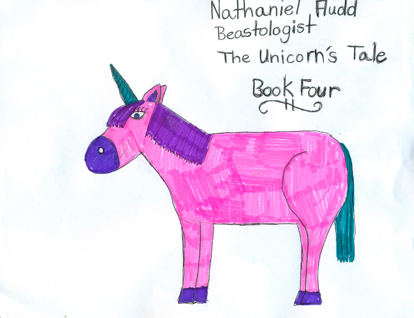 Nathaniel Fludd
Beastologist
The Unicorn's Tale
Book Four